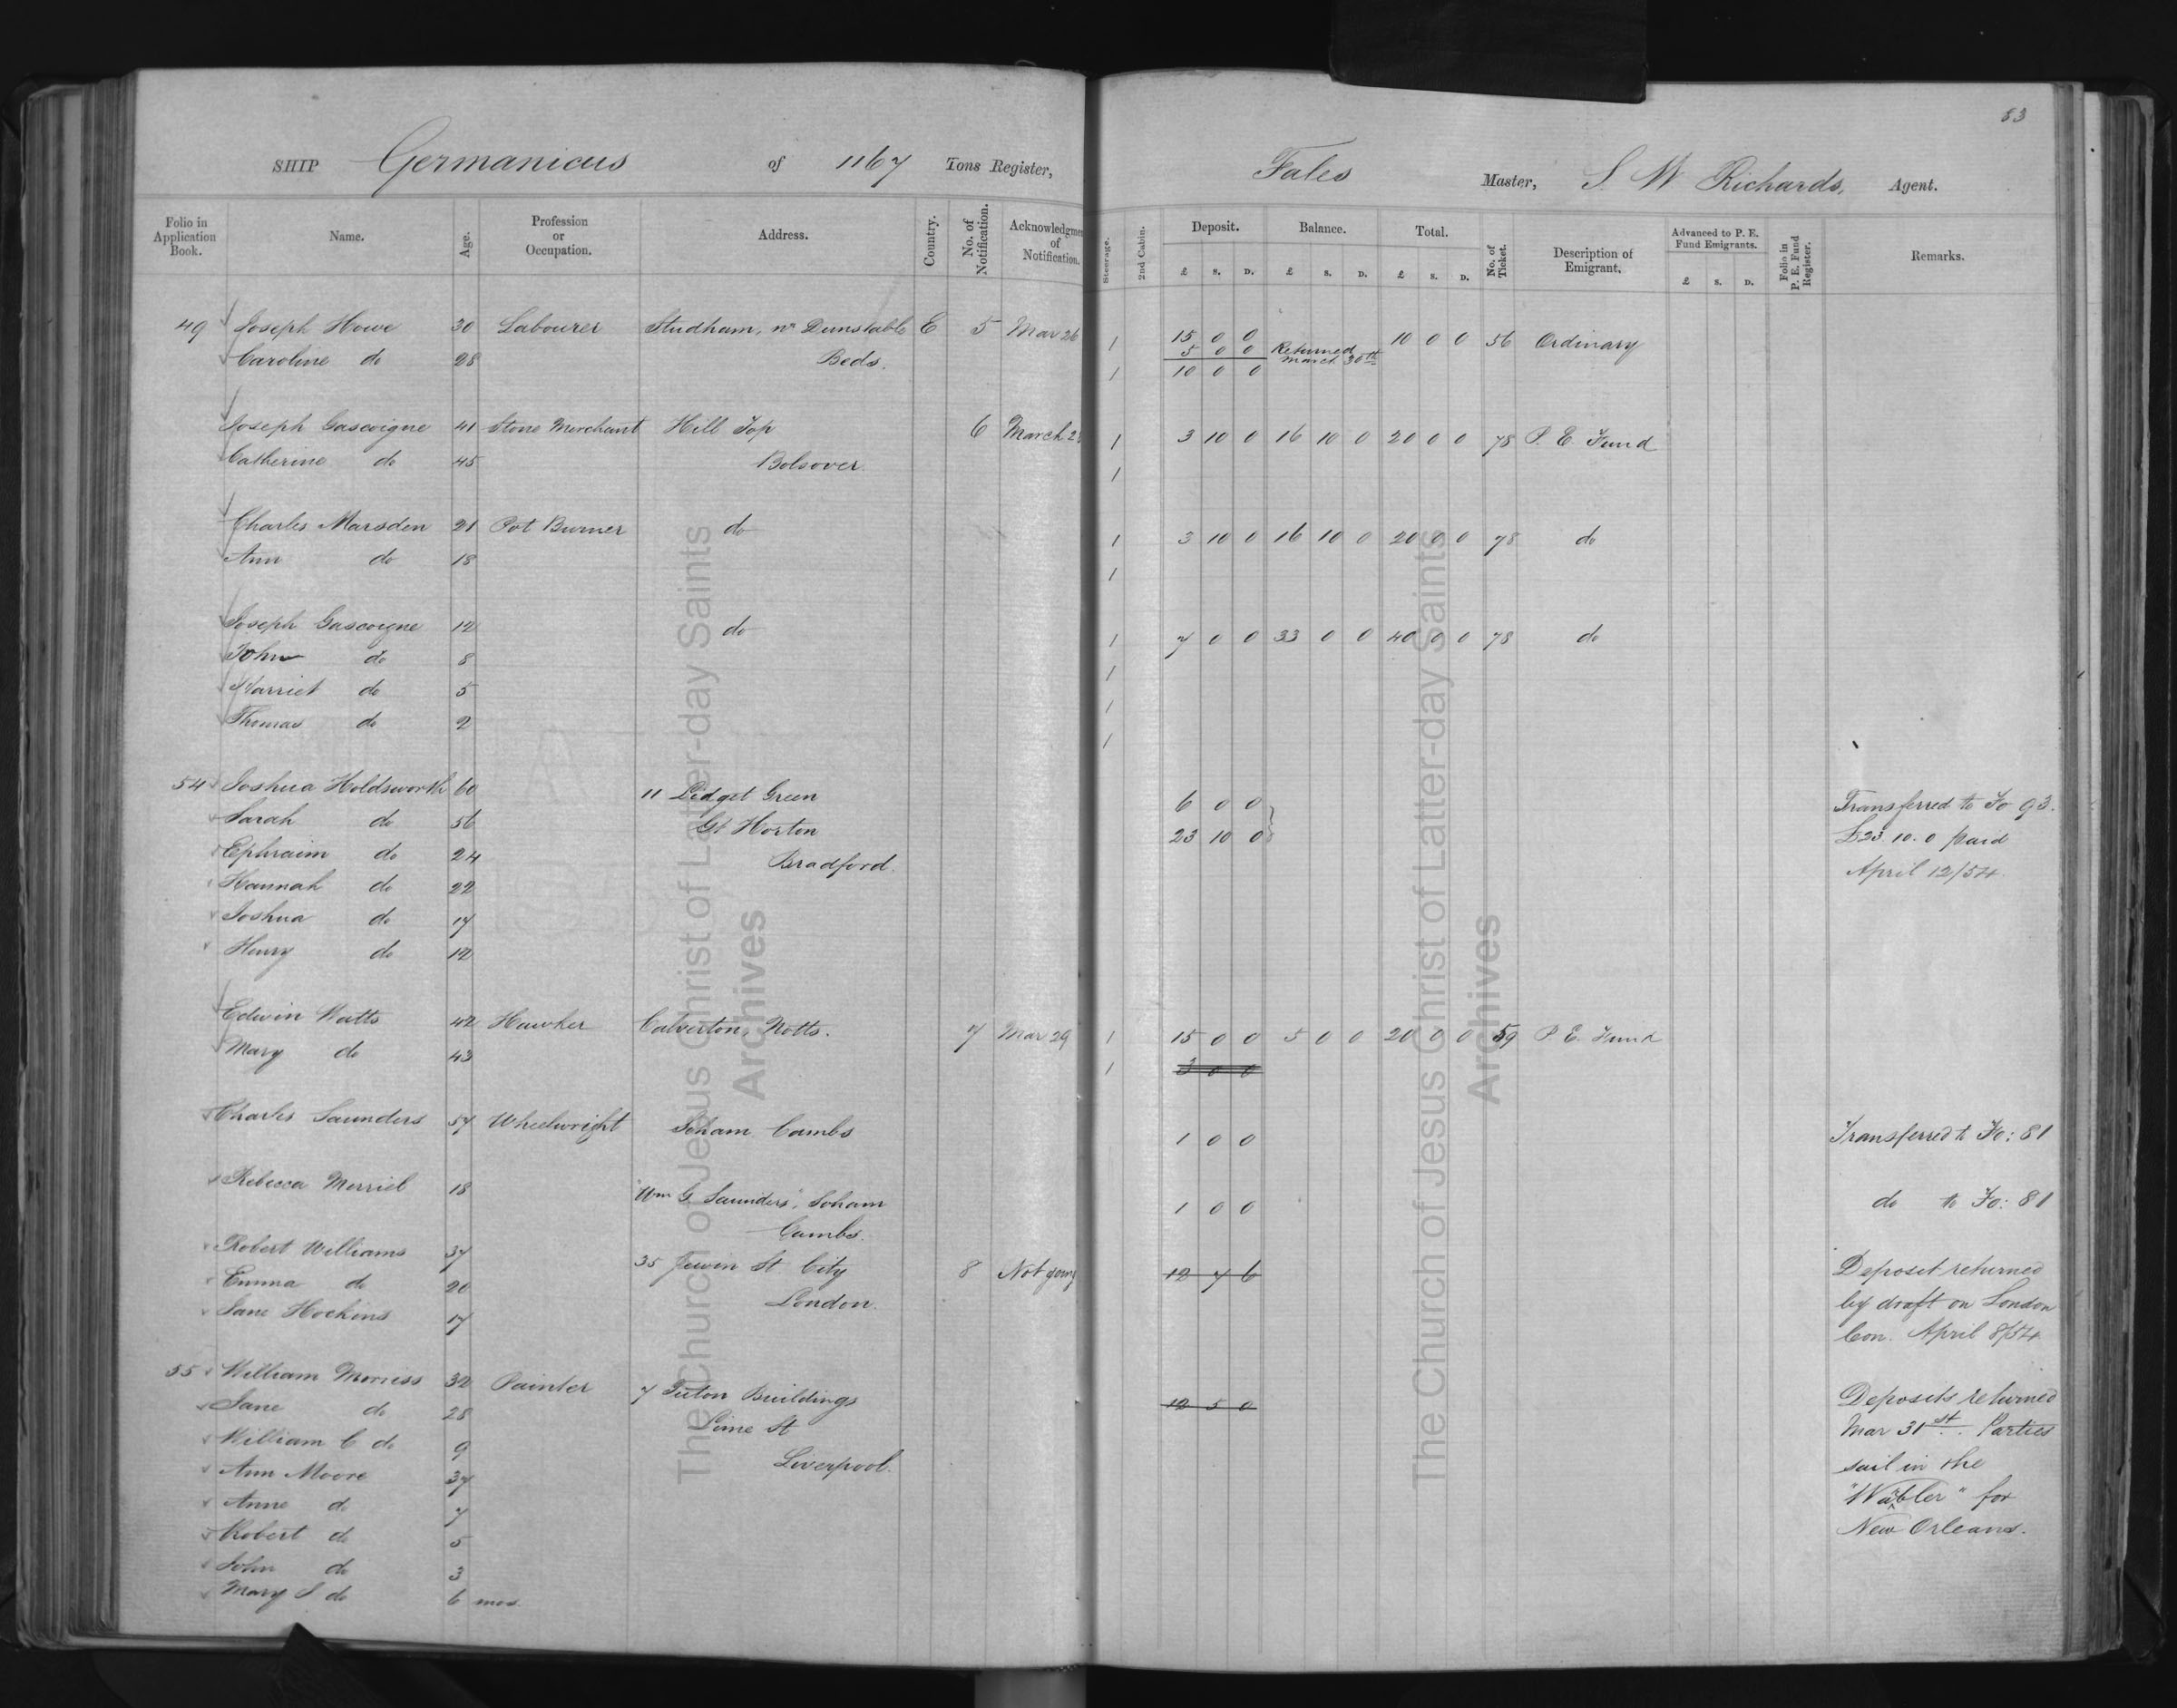 83
SHIP Germanicus of 1167 Tons Register, Fales Master, S. W Richards, Agent.
Folio in Application Book. Name. Age. Profession or Occupation. Address. Country. No. of Notification. Acknowledgme of Notification. Steerage. 2nd Cabin. Deposit. £ s. D. Balance. £ s. D. Total. £ s. D. No. of Ticket. Description of Emigrant. Advanced to P. E. Fund Emigrants. £ s. D. Folio in P. E. Fund Register. Remarks.
49 Joseph Howe 30 Labourer Studham, nr Dunstable E 5 Mar 26 1 15 0 0 10 0 0 56 Ordinary
5 0 0 Returned March 30th
Caroline do 28 Beds. 1 10 0 0
Joseph Gascoigne 41 Stone Merchant Hill Top 6 March 2 1 3 10 0 16 10 0 20 0 0 78 P. E. Fund
Catherine do 45 Bolsover 1
Charles Marsden 21 Pot Burner do 1 3 10 0 16 10 0 20 0 0 78 do
Ann do 18 1
Joseph Gascoigne 12 do 1 7 0 0 33 0 0 40 0 0 78 do
John do 8 1
Harriet do 5 1
Thomas do 2 1
54 Joshua Holdsworth 60 11 Lidget Green 6 0 0 Transferred to Fo 93.
Sarah do 56 Gt Horton 23 10 0 £23. 10. 0 paid
Ephraim do 24 Bradford. April 12/54
Hannah do 22
Joshua do 17
Henry do 12
Edwin Watts 42 Hawker Calverton, Notts. 7 Mar 29 1 15 0 0 5 0 0 20 0 0 59 P. E. Fund
Mary do 43 1 3 0 0
Charles Saunders 57 Wheelwright Soham Cambs 1 0 0 Transferred to Fo: 81
Rebecca Merriel 18 "Wm G. Saunders", Soham 1 0 0 do to Fo: 81
Cambs.
Robert Williams 37 35 Jewin St City 8 Not going 12 7 6 Deposit returned
Emma do 20 London. by draft on London
Jane Hockins 17 Con. April 8/54
55 William Morriss 32 Painter 7 Buildings 12 5 0 Deposits returned
Jane do 28 Lime St Mar 31st. Parties
William C do 9 Liverpool. sail in the
Ann Moore 37 "Wabler" for
Anne do 7 New Orleans.
Robert do 5
John do 3
Mary S do 6 mos
The Church of Jesus Christ of Latter-day Saints
Archives
The Church of Jesus Christ of Latter-day Saints
Archives